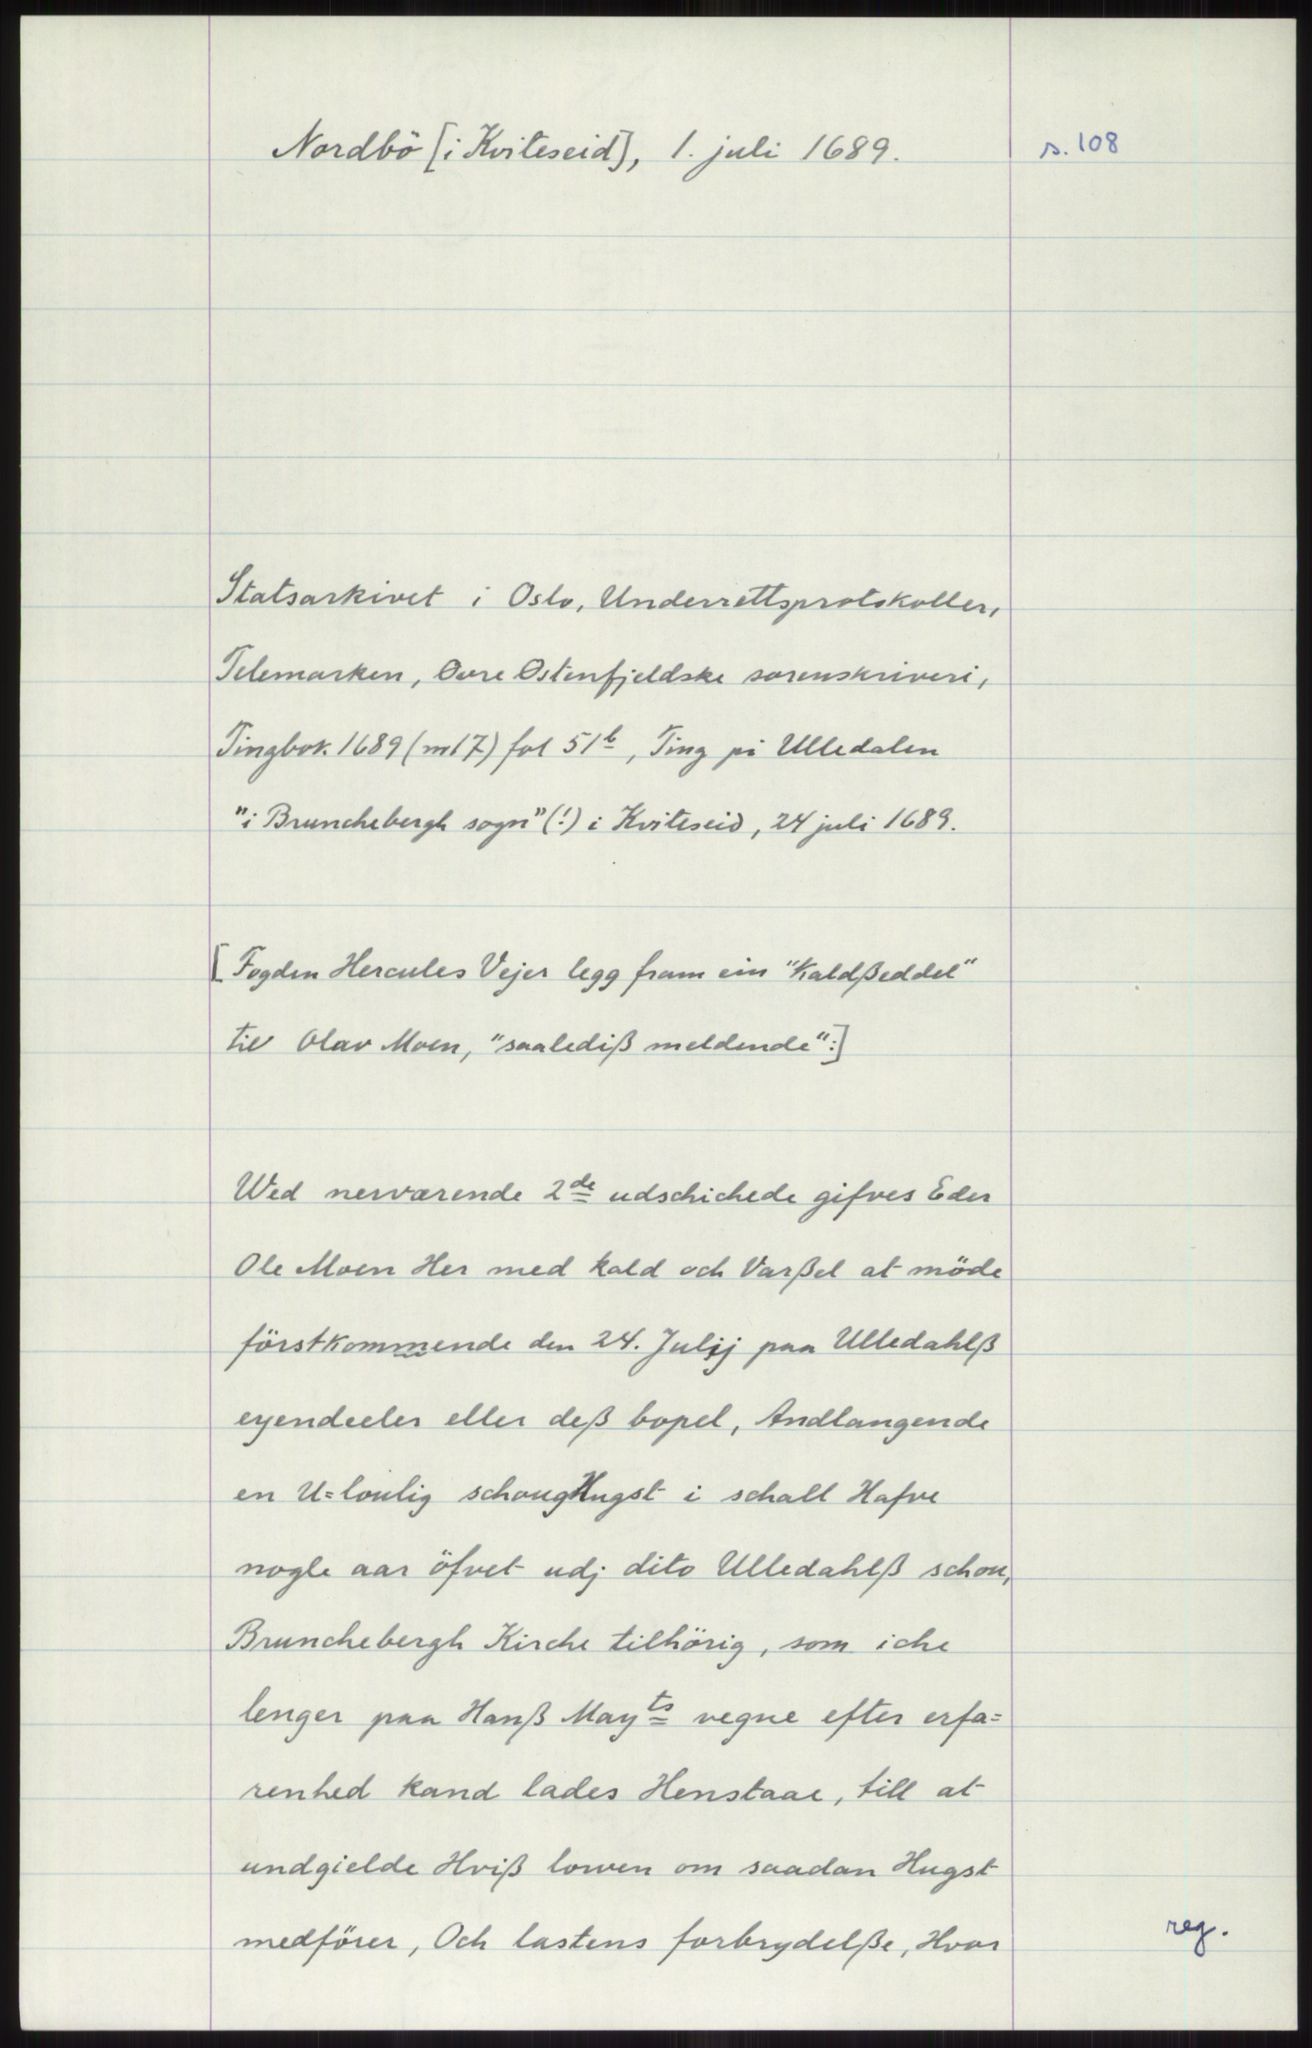 Nordbö [i Kviteseid], 1. juli 1689.
s. 108
Statsarkivet i Oslo, Underrettsprotokoller,
Telemarken, Övre Östenfjeldske sorenskriveri,
Tingbok 1689 (nr 17) fol 51b, Ting på Ulledalen
"i Brunchebergh sogn" (!) i Kviteseid, 24 juli 1689.
[Fogden Hercules Vejer legg fram ein "Kaldßeddel"
til Olav Moen, "saalediß meldende":]
Wed nerværende 2de udschichede gifves Eder
Ole Moen Her med kald och Varßel at möde
förstkommende den 24. Julij paa Ulledahlß
eyendeeler eller deß bopel, Andlangende
en U=loulig schougHugst i schall Hafve
nogle aar öfvet udj dito Ulledahlß schou,
Brunchebergh Kirche tilhörig, som iche
lenger paa Hanß Mayts vegne efter erfa=
renhed kand lades Henstaae, till at
undgielde Hviß lowen om saadan Hugst
medförer, Och lastens forbrydelße, Hvor
reg.